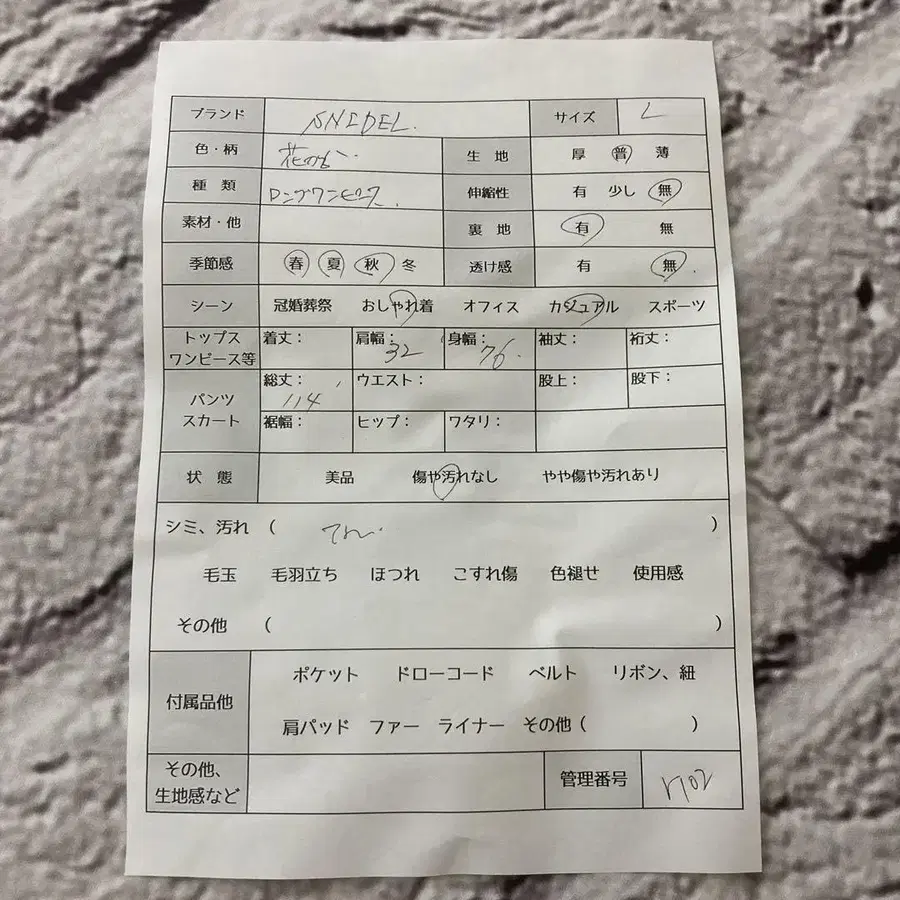 ブランド SNIDEL. サイズ L
色・柄 生地 厚 普 薄
種類 ロングワンピース. 伸縮性 有 少し 無
素材・他 裏地 有 無
季節感 春 夏 秋 冬 透け感 有 無
シーン 冠婚葬祭 おしゃれ着 オフィス カジュアル スポーツ
トップス ワンピース等 着丈： 肩幅：32 身幅：76. 袖丈： 裄丈：
パンツ スカート 総丈：114 ウエスト： 股上： 股下：
裾幅： ヒップ： ワタリ：
状態 美品 傷や汚れなし やや傷や汚れあり
シミ、汚れ （ ）
毛玉 毛羽立ち ほつれ こすれ傷 色褪せ 使用感
その他 （ ）
付属品他 ポケット ドローコード ベルト リボン、紐
肩パッド ファー ライナー その他（ ）
その他、 生地感など 管理番号